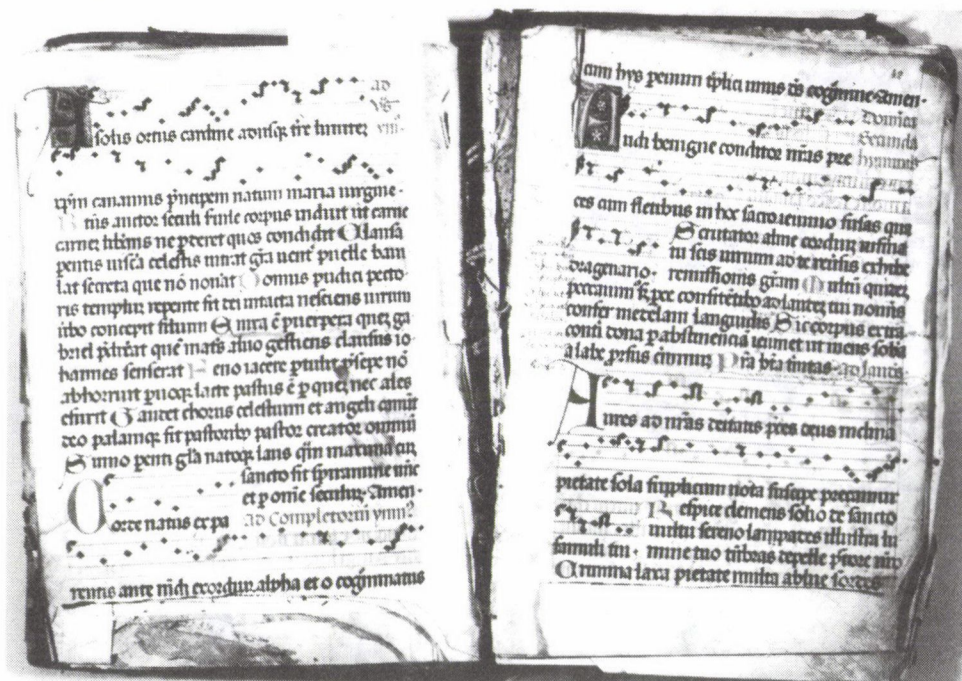 ad
A solis ortus cardine adusq; tre limitez
xp̄m canamus p̄ncipem natum maria uirgine·
B tus auctor seculi seruile corpus induit ut carne
carnez libans ne pderet quos condidit Clausa
pentis uisca celestis intrat gr̄a uent puelle baiu
lat secreta que nō nouat Domus pudici pecto
ris templuz repente fit dei intacta nesciens uirum
ubo concepit filium Enixa ē puerpera quez ga
briel pdixerat quē mat's aluo gestiens clausus io
hannes senserat Feno iacere ptulit psepe nō
abhorruit puoq; lacte pastus ē p quez nec ales
esurit Gaudet chorus celestium et angeli canūt
deo palamq; fit pastorib; pastor creator omniū
Sūmo penti gl̄a natoq; laus qm̄ maxima cuz
sancto sit spiramine nūc
et p omē seculuz· Amen·
Corde natus ex pa ad Completoriū ymn
rentis ante mūdi exorduz alpha et o cognominatus
cum hys penum tplici unius t's cognomine· Amen·
Domica
Secunda
Audi benigne conditor nr̄as pre hymnus
ces cum fletibus in hoc sacro ieiunio fusas qua
Scrutator alme corduz infirma
tu scis uirium ad te reuersis exhibe
dragenario· remissionis gr̄am Multū quidez
peccauim' s; pce confitētib; ad laudez tui nominis
confer medelam languidis Sic corpus extra
conti dona p abstinenciā ieiunet ut mens sobia
a labe psus criminuz Pra bt̄a tintas· ad laudes
Aures ad nr̄as deitatis pces deus inclina
pietate sola supplicum uota suscipe precamur
Respice clemens solio de sancto
uultu sereno lampades illustra lu
famuli tui· mine tuo tenbras depelle pctore nro
Crimina laxa pietate multa ablue sordes